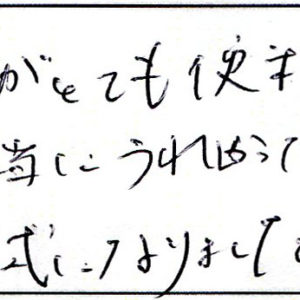 がとても便利
当にうれしかった
式になりました